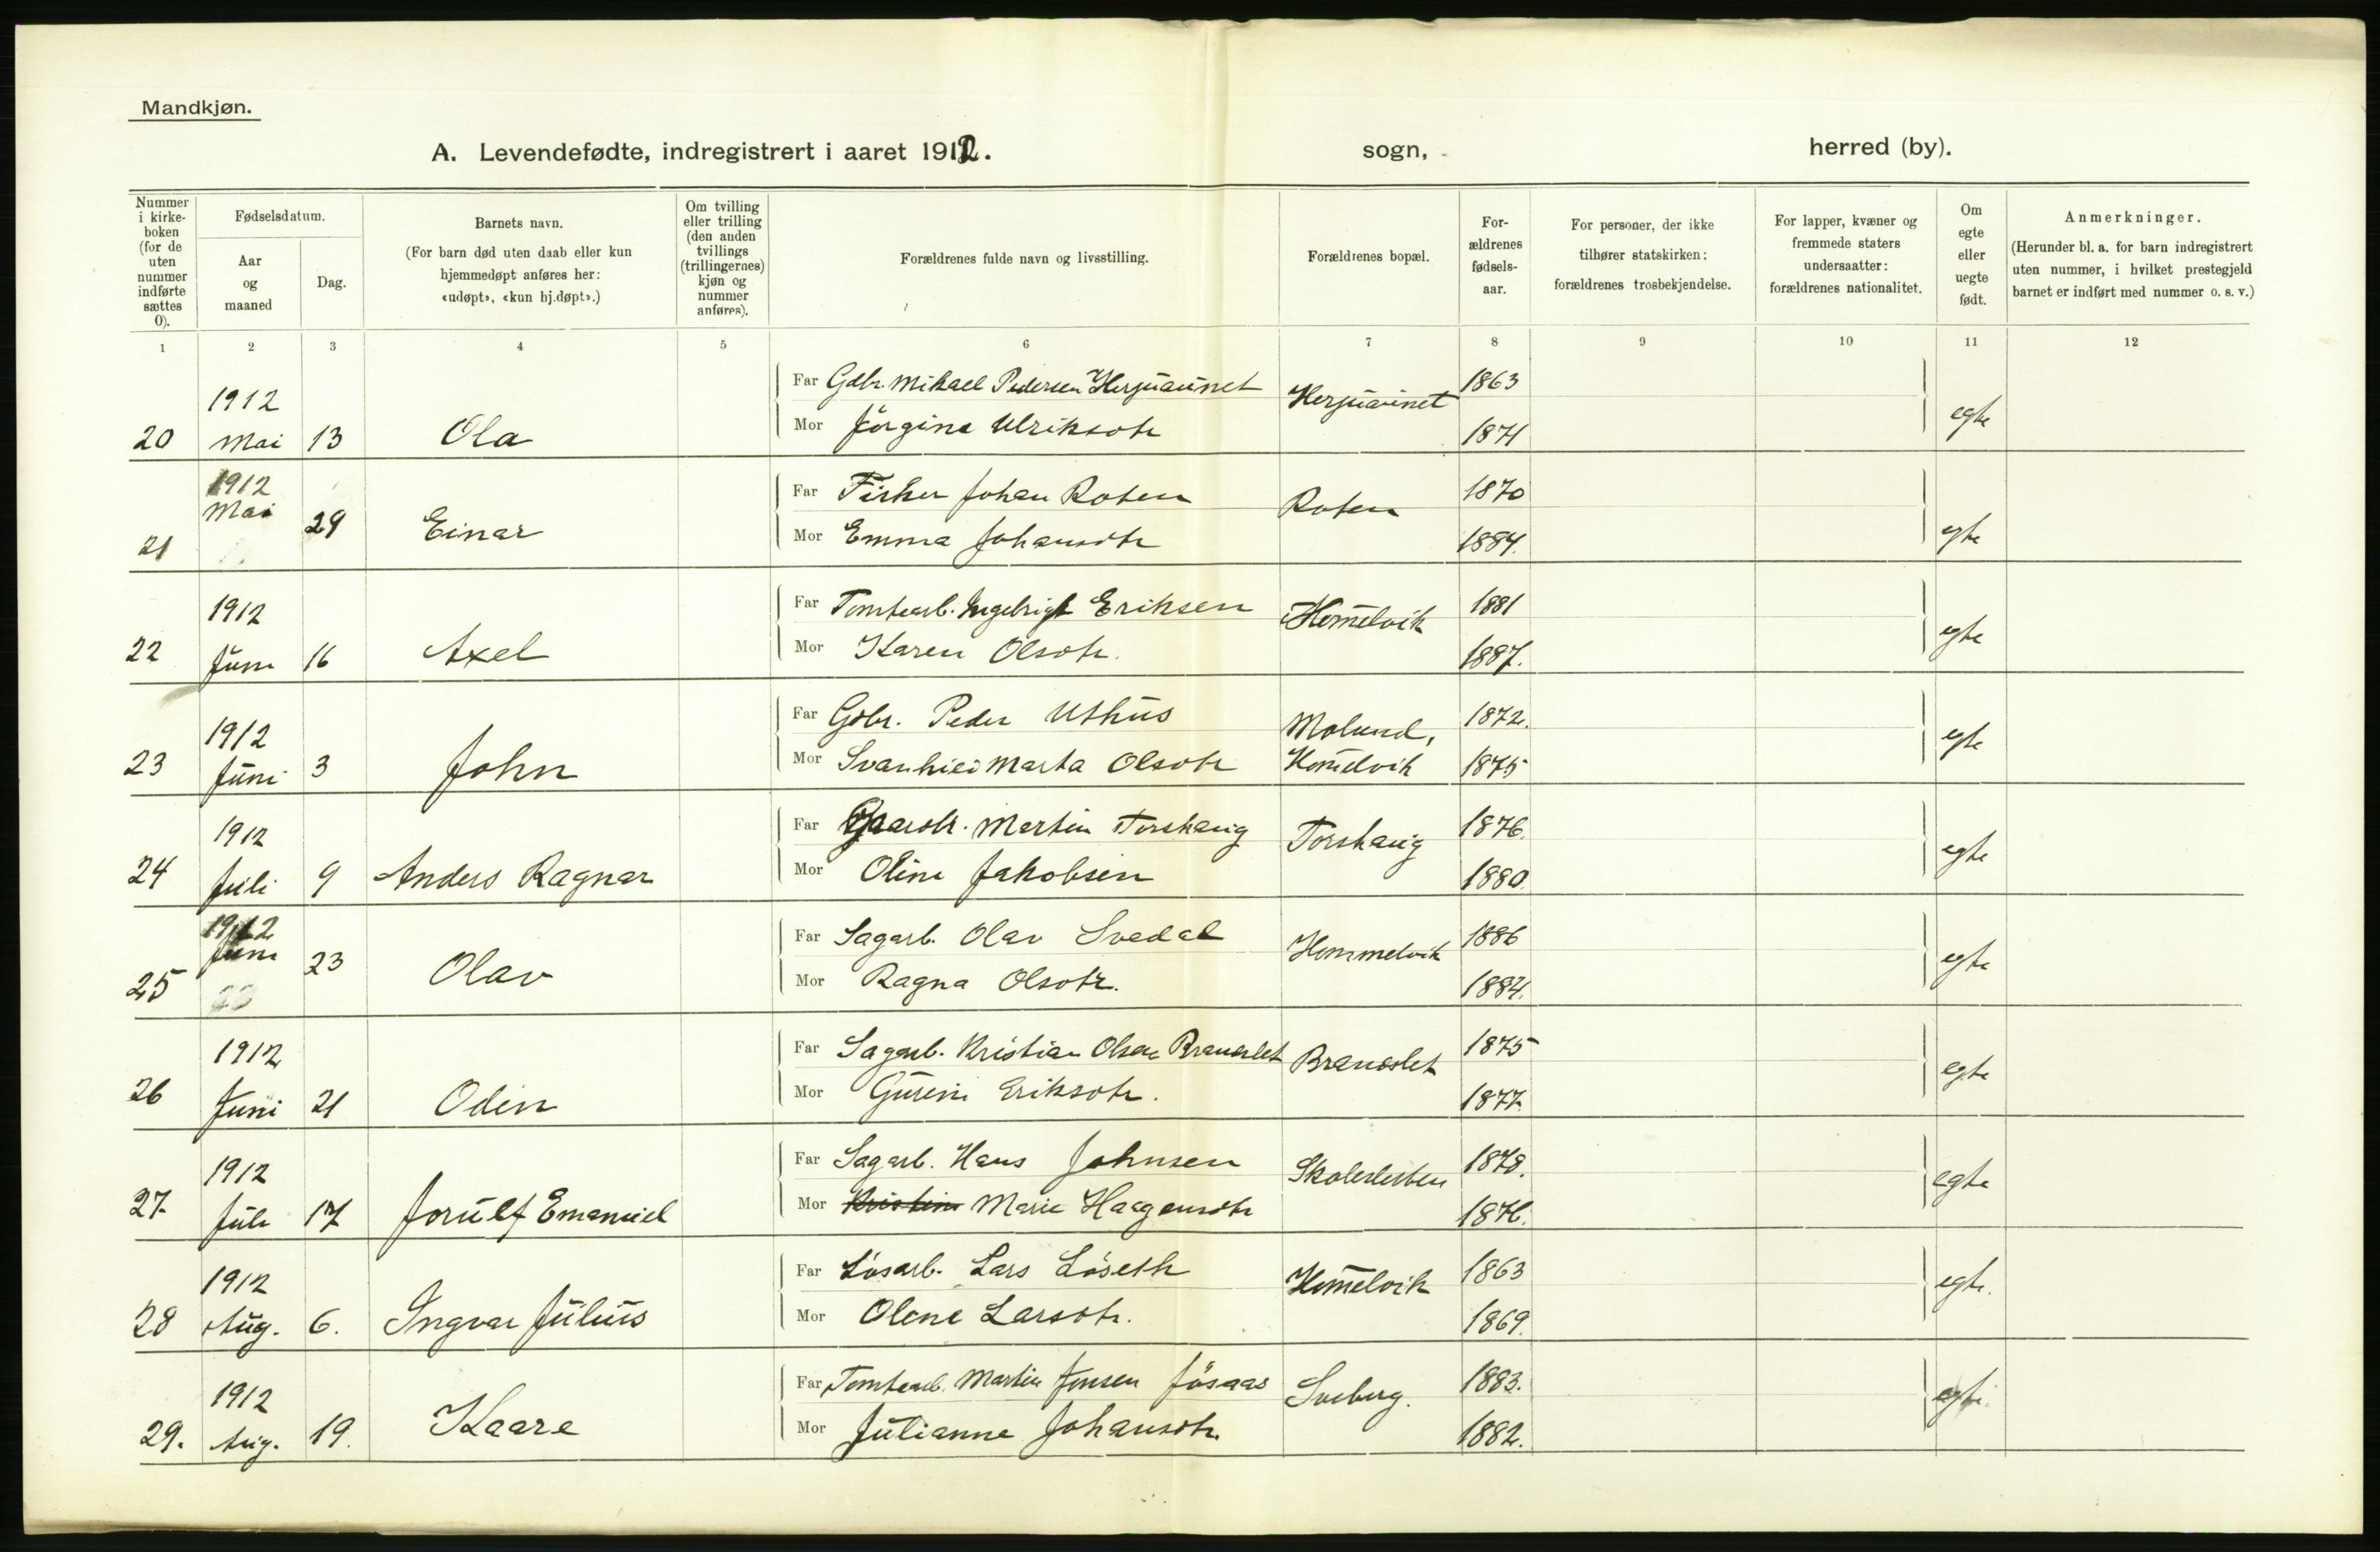 Mandkjøn.
A. Levendefødte, indregistrert i aaret 1912. sogn, herred (by).
Nummer i kirkeboken (for de uten nummer indførte sættes 0).
Fødselsdatum.
Aar og maaned
Dag.
Barnets navn.
(For barn død uten daab eller kun hjemmedøpt anføres her: «udøpt», «kun hj.døpt».)
Om tvilling eller trilling (den anden tvillings (trillingernes) kjøn og nummer anføres).
Forældrenes fulde navn og livsstilling.
Forældrenes bopæl.
Forældrenes fødselsaar.
For personer, der ikke tilhører statskirken: forældrenes trosbekjendelse.
For lapper, kvæner og fremmede staters undersaatter: forældrenes nationalitet.
Om egte eller uegte født.
Anmerkninger.
(Herunder bl. a. for barn indregistrert uten nummer, i hvilket prestegjeld barnet er indført med nummer o. s. v.)
1 2 3 4 5 6 7 8 9 10 11 12
Far Gdbr. Mikael Pedersen Herjuaunet Herjuaunet 1863
20 1912 Mai 13 Ola egte
Mor Jörgine Ulriksdtr 1871
Far Fisker Johan Roten Roten 1870
21 1912 Mai 29 Einar egte
Mor Emma Johansdtr 1884.
Far Tomtearb. Ingebrigt Eriksen Hom̄elvik 1881
22 1912 Juni 16 Axel egte
Mor Karen Olsdtr. 1887.
Far Gdbr. Peder Uthus Molund, 1872.
23 1912 Juni 3 John egte
Mor Svanhild Marta Olsdtr Hom̄elvik 1875
Far Gaardbr. Martin Torshaug Torshaug 1876.
24 1912 Juli 9 Anders Ragnar egte
Mor Oline Jakobsen 1880.
Far Sagarb. Olav Svedal Hommelvik 1886
25 1912 Juni 23 Olav egte
Mor Ragna Olsdtr. 1884.
Far Sagarb. Kristian Olsen Brandslet Brandslet 1875
26 1912 Juni 21 Odin egte
Mor Gureni Eriksdtr. 1877.
Far Sagarb. Hans Johnsen 1878.
27 1912 Juli 17 Jorulf Emanuel egte
Mor Kristine Marie Haagensdtr 1876.
Far Løsarb. Lars Löseth Hom̄elvik 1863
28 1912 Aug. 6. Ingvar Julius egte.
Mor Olene Larsdtr. 1869.
Far Tomtearb. Martin Jensen Jøsaas Sveberg. 1883.
29. 1912 Aug. 19. Kaare egte.
Mor Julianne Johansdtr. 1882.